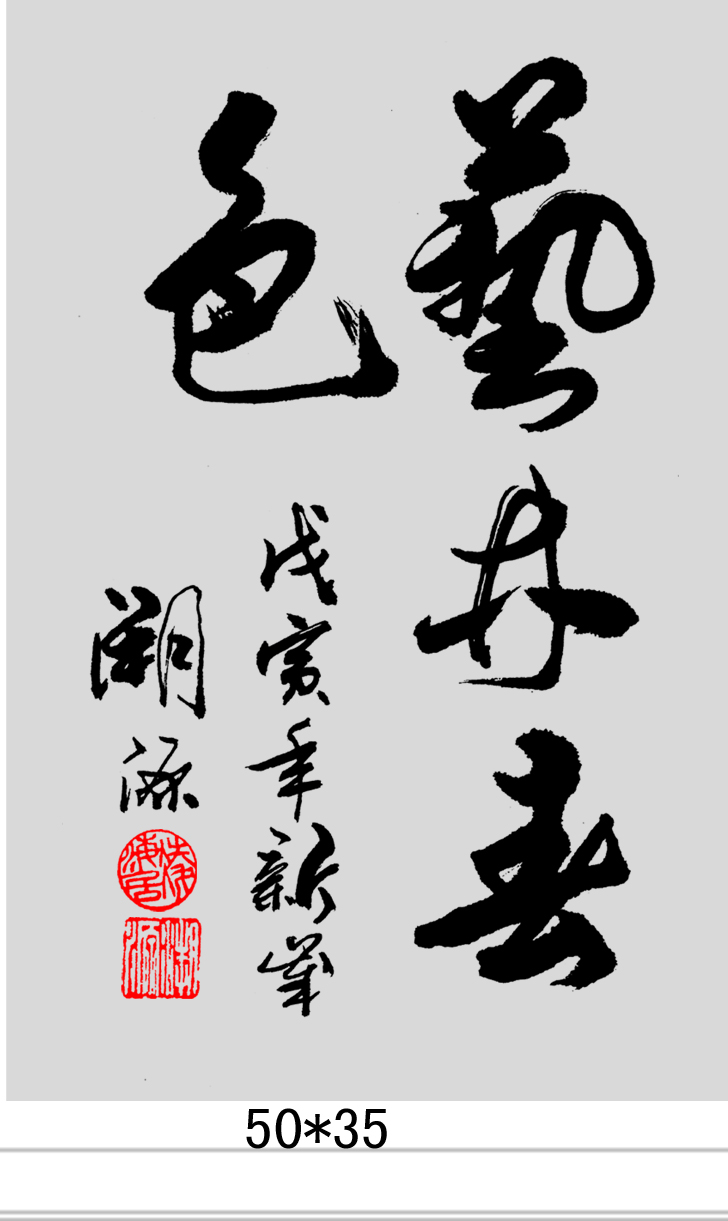 藝林春
色
戊寅年新峯
溯源
50*35